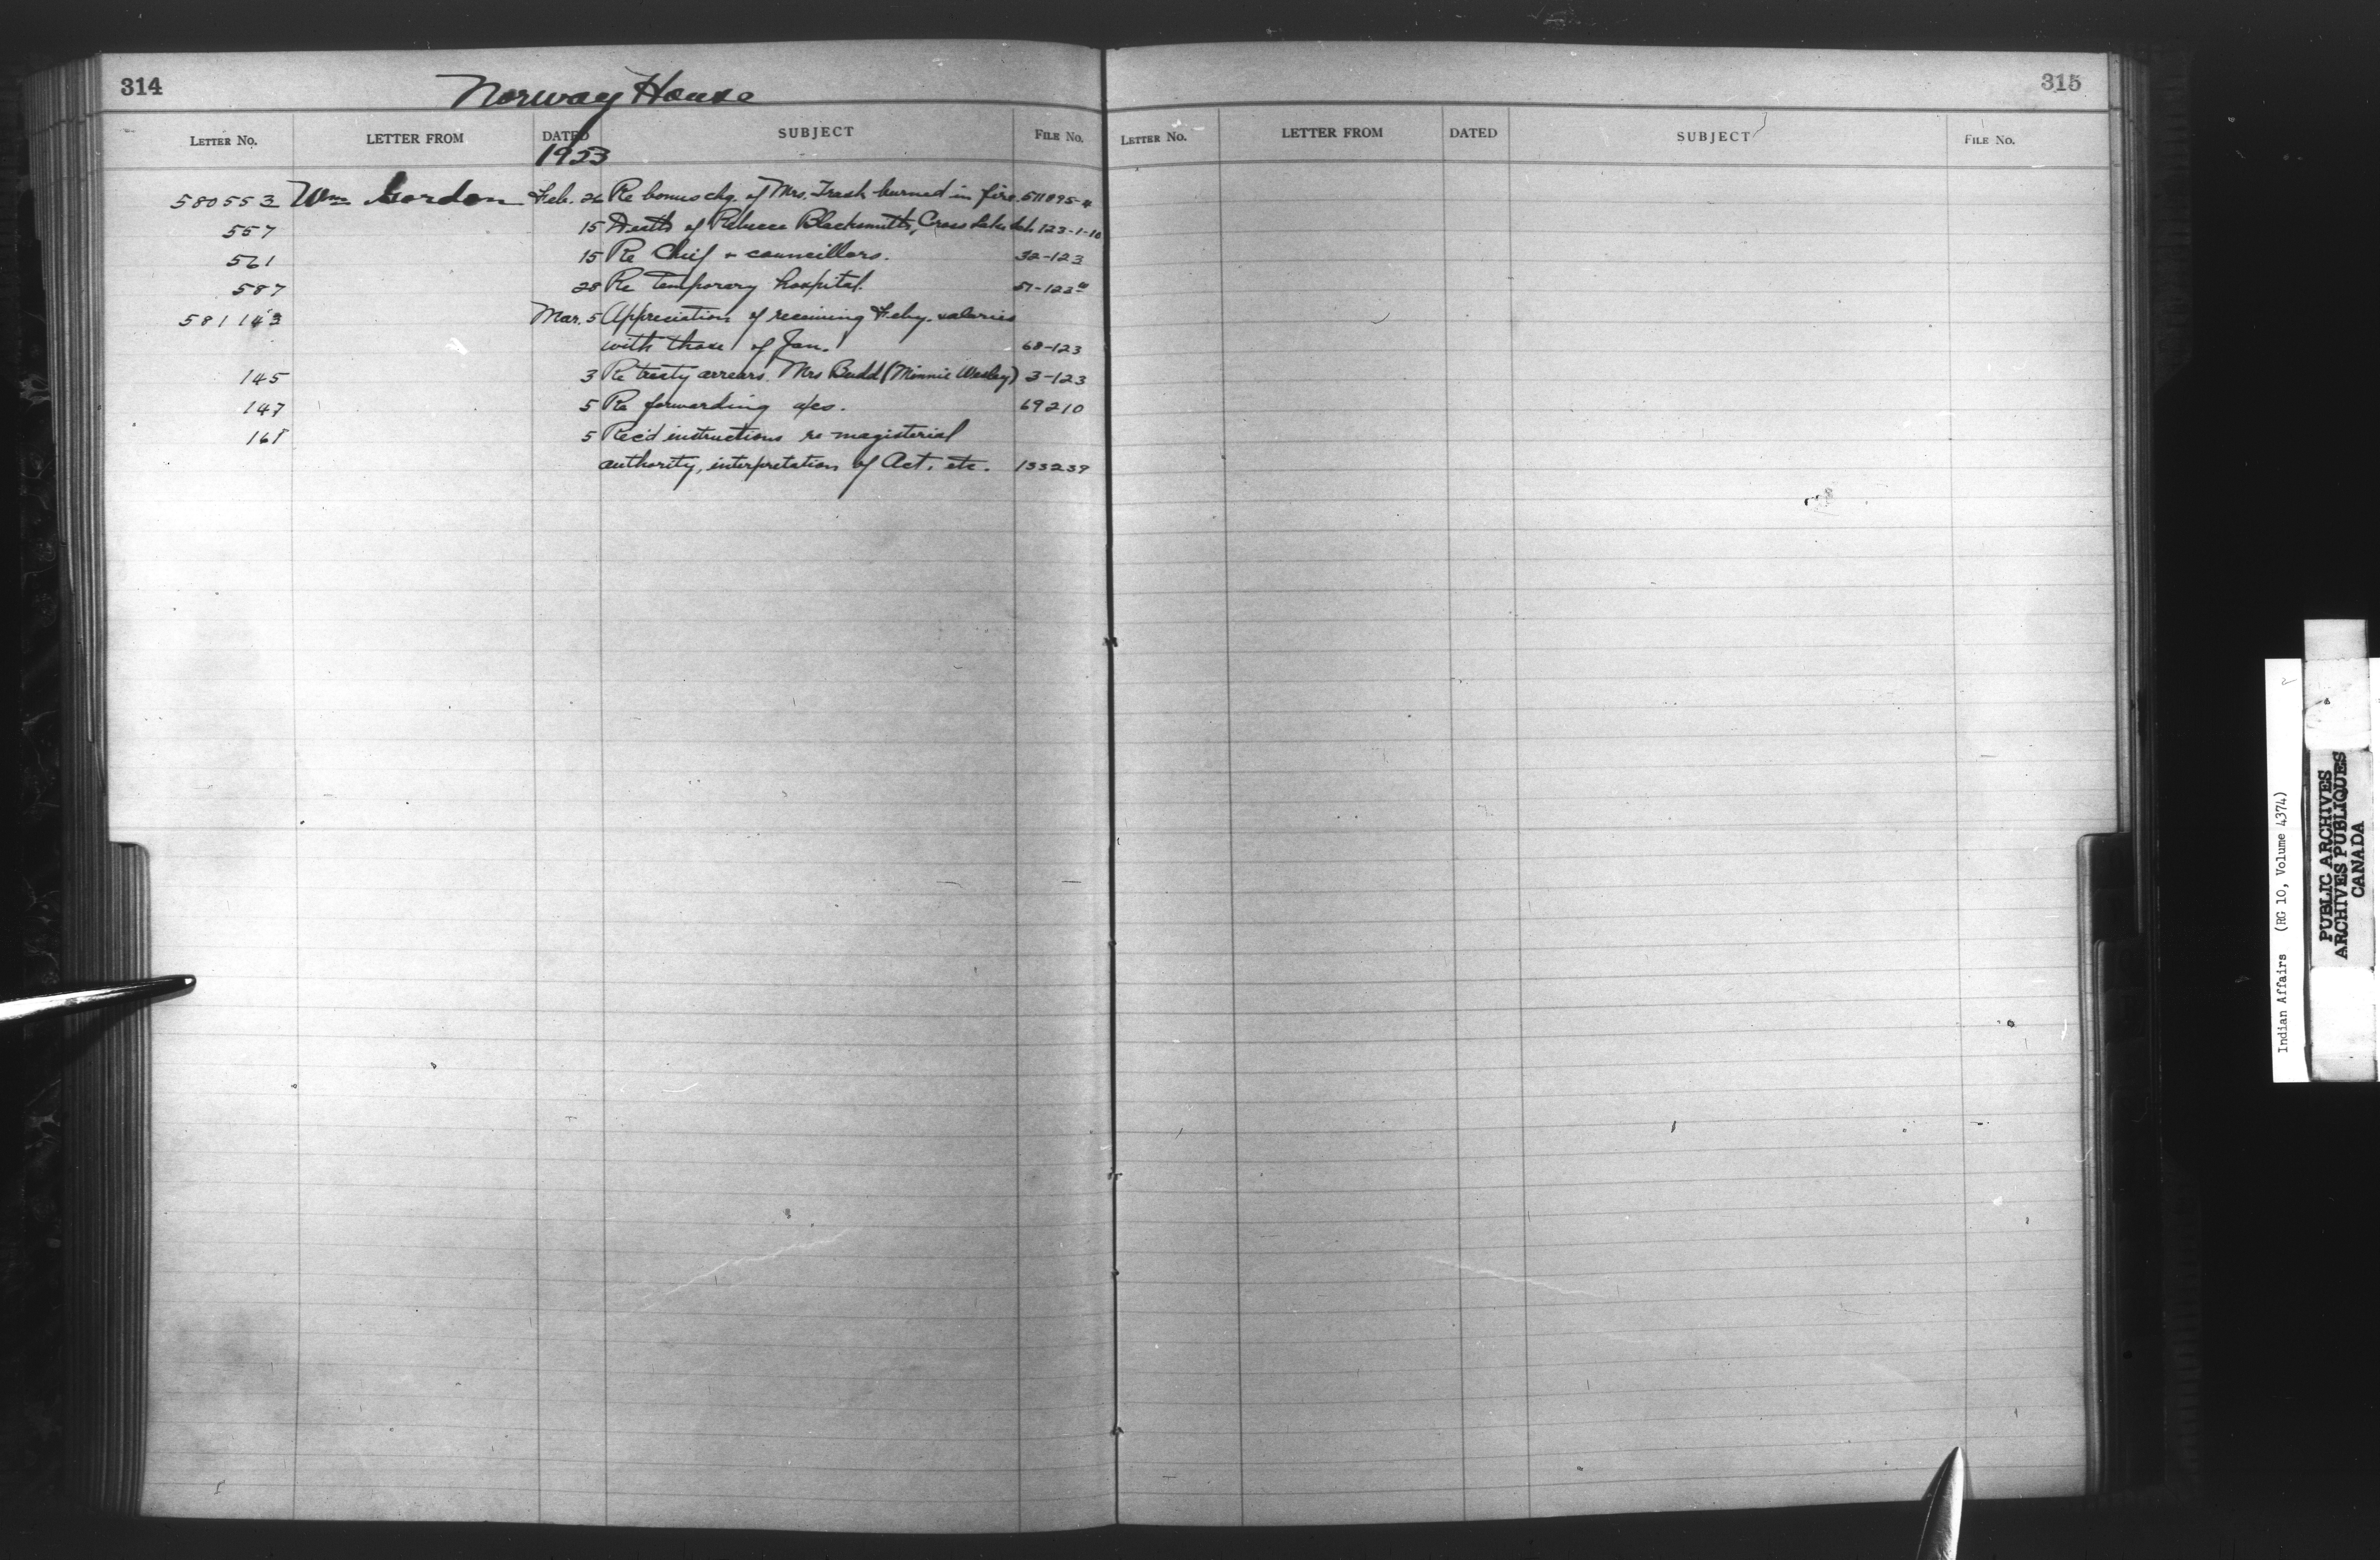 314
Norway House
LETTER NO. LETTER FROM DATED SUBJECT FILE NO.
1923
580553 Wm Gordon Feb. 26 Re bonus chq. of Mrs. burned in fire. 511895-4
557 15 Death of Rebecca Blacksmith, Cross Lake 123-1-10
561 15 Re Chief & councillors. 32-123
587 28 Re temporary hospital.
581143 Mar. 5 Appreciation of receiving Feby. salaries
with those of Jan. 68-123
145 3 Re treaty arrears Mrs Budd (Minnie Wesley) 3-123
147 5 Re forwarding a/cs. 69210
161 5 Rec'd instructions re magisterial
authority, interpretation of Act, etc. 133239
315
LETTER NO. LETTER FROM DATED SUBJECT FILE NO.
Indian Affairs (RG 10, Volume 4374)
PUBLIC ARCHIVES
ARCHIVES PUBLIQUES
CANADA